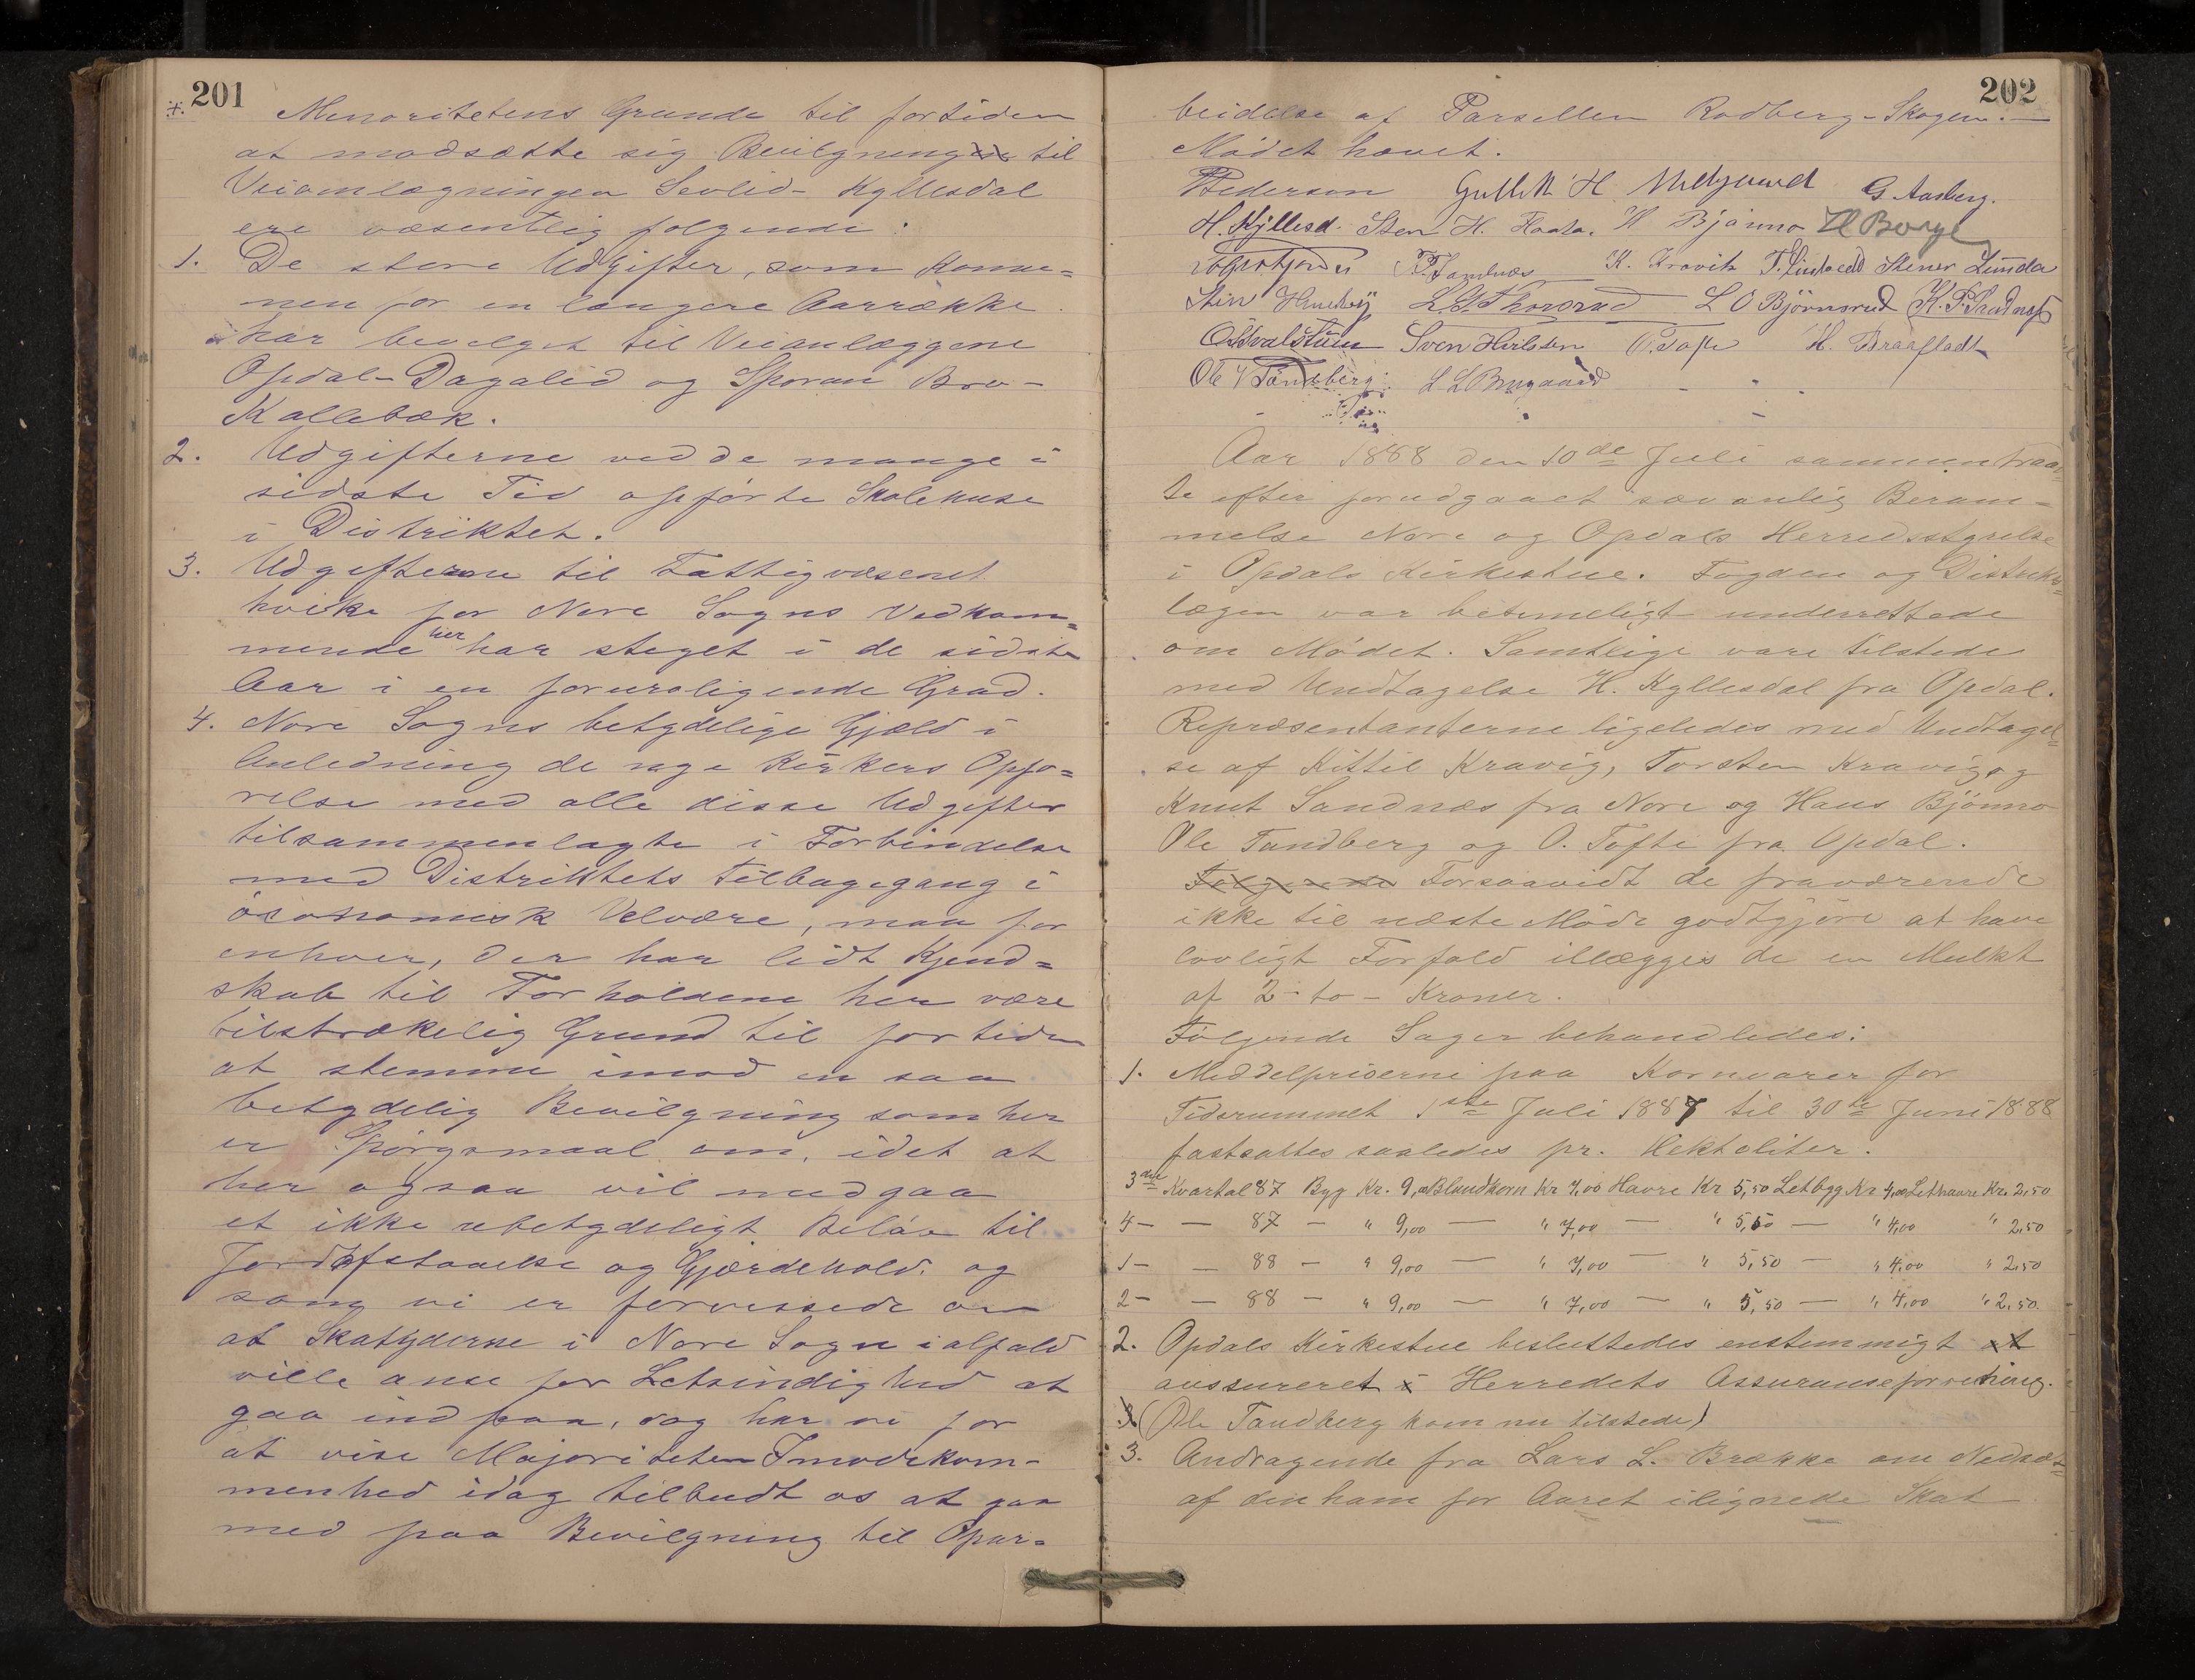 201
+. Menoritetens Grunde til fortiden
at modsætte sig Bevilgning til
Veiomlægningen Sevlid- Kyllesdal
ere væsentlig følgende:
1. De store Udgifter, som Komu=
nen for en længere Aarrække
har bevilget til Veianlæggene
Opdal-Dagalid og Sporan Bro-
Kallebæk.
2. Udgifterne ved de mange i
sidste Tid opførte Skolehuse
i Distriktet.
3. Udgifterne til Fattigvæsenet
hvilke for Nore Sogns Vedkom=
mende her har steget i de sidste
Aar i en foruroligende Grad.
4. Nore Sogns betydelige Gjæld i
Anledning de nye Kirkers Opfø=
relse med alle disse Udgifter
tilsammenlagte i Forbindelse
med Distriktets tilbagegang i
øconomisk Velvære, maa for
enhver, der har lidt Kjend=
skab til Forholdene her være
tilstrækelig Grund til for tiden
at stemme imod en saa
betydelig Bevilgning som her
er Spørgsmaal om, idet at
her ogsaa vil medgaa
et ikke ubetydeligt Beløb til
Jordafstaaelse og Gjærdehold, og
som vi er forvissede om
at Skatyderne i Nore Sogn ialfald
ville anse for Letsindighed at
gaa ind paa, dog har vi for
at vise Majoriteten Imødekom-
menhed idag tilbudt os at gaa
med paa Bevilgning til Opar=
202
beidelse af Parsellen Rodberg-Skogen.-
Mødet hævet.
Pederson Gullik H. G. Aasberg.
H. Kyllesd. Sten H. Haata. H Bjønno H Borge
T. Sandnæs K. Kravik Stener Lunda
L O Bjørnsrud
Sven O. Tofte H. Braafladt
Ole T Tandberg L L Brugaard
Aar 1888 den 10de Juli sammentraad
te efter forudgaaet sævanlig Beram=
melse Nore og Opdals Herredsstyrelse
i Opdals Kirkestue. Fogden og Distrikts=
lægen var betimeligt underrettede
om Mødet. Samtlige vare tilstede
med Undtagelse H. Kyllesdal fra Opdal.
Repræsentanterne ligeledes med Undtagel=
se af Kittil Kravig, Torsten Kravig og
Knut Sandnæs fra Nore og Hans Bjønno
Ole Tandberg og O. Tofte fra Opdal.
Følgende Forsaavidt de fraværende
ikke til næste Møde godtgjøre at have
lovligt Forfald illægges de en Mulkt
af 2 - to - Kroner.
Følgende Sager behandledes:
1. Middelpriserne paa Kornvarer for
Tidsrummet 1ste Juli 1887 til 30te Juni 1888
fastsattes saaledes pr. Hektoliter.
3die Kvartal 87 Byg Kr. 9,00 Blandkorn Kr 7,00 Havre Kr 5,50 Letbyg Kr 4,00 Lethavre Kr. 2,50
4- — 87 - " 9,00 — " 7,00 — " 5,50 — " 4,00 " 2,50
1- — 88 - " 9,00 — " 7,00 — " 5,50 — " 4,00 " 2,50
2- — 88 - " 9,00 — " 7,00 — " 5,50 — " 4,00 " 2,50.
2. Opdals Kirkestue besluttedes enstemmigt at
assureret i Herredets Assuranseforretning.
(Ole Tandberg kom nu tilstede)
3. Andragende fra Lars L. Brække om Nedsæt=
af den ham for Aaret ilignede Skat